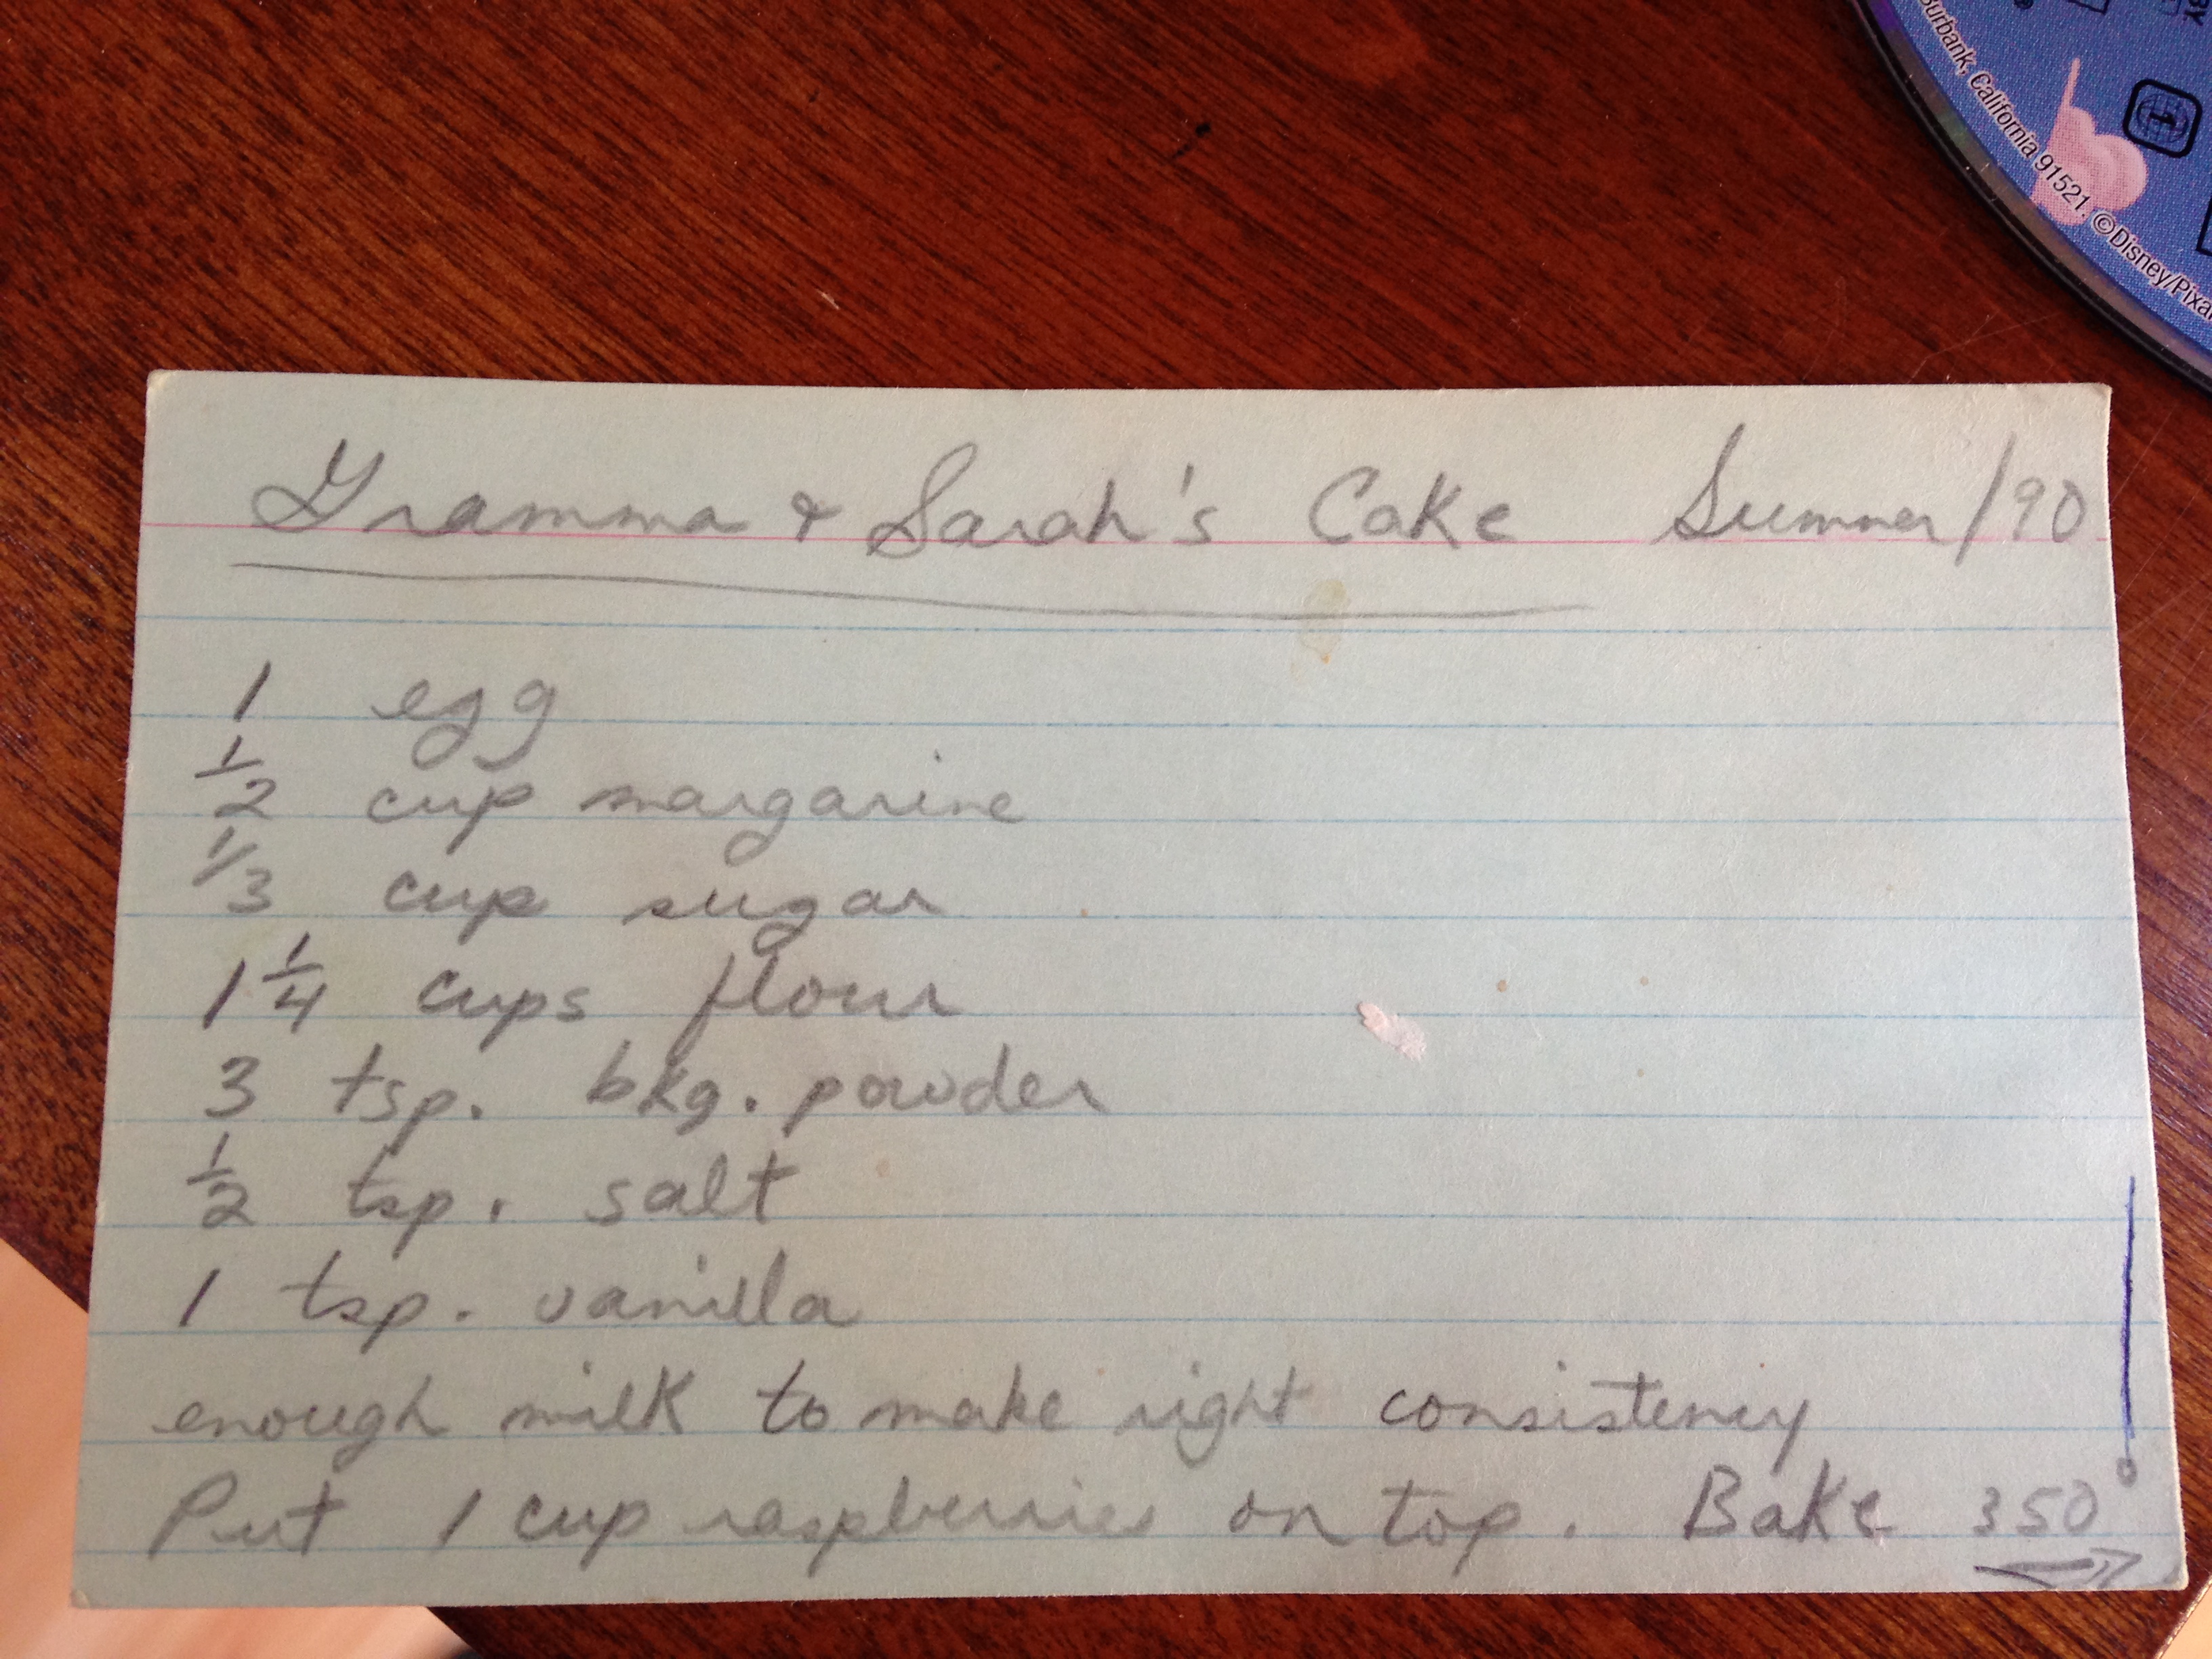 Burbank, California 91521. ©Disney/Pixar
Gramma & Sarah's Cake Summer/90
1 egg
1/2 cup margarine
1/3 cup sugar
1 1/4 cups flour
3 tsp. bkg. powder
1/2 tsp. salt
1 tsp. vanilla
enough milk to make right consistency
Put 1 cup raspberries on top. Bake 350°